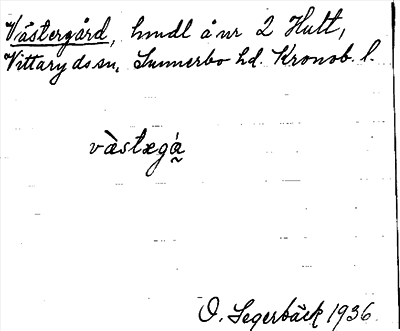 Västergård, hmdl å nr 2 Hult,
Vittaryds sn. Sunnerbo hd. Kronob. l.
vàstægá̰
O. Segerbäck 1936